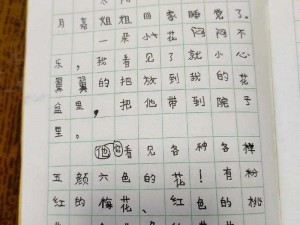 月亮姐姐回家睡觉了。
一朵小花闷闷不
乐，我看见了就小心
翼翼的把放到我的花
盆里，把他带到院子
里。
他看见各种各样
五颜六色的花！有粉
红的梅花、红色的桃